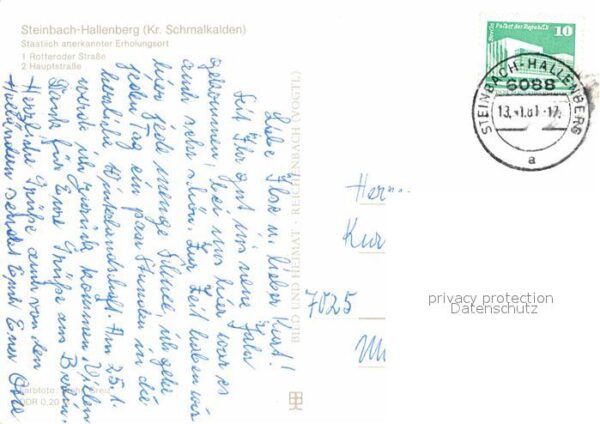 Steinbach-Hallenberg (Kr. Schmalkalden)
Staatlich anerkannter Erholungsort
1 Rotteroder Straße
2 Hauptstraße
Liebe Ilse u. lieber Kurt!
Seit Ihr gut ins neue Jahr
gekommen, bei uns hier war es
auch sehr schön. Zur Zeit haben wir
hier jede menge Schnee, ich gehe
jeden Tag ein paar Stunden in die
herrliche Winterlandschaft. Am 25.1.
werde ich zurück kommen. Vielen
Dank für Eure Grüße aus Berlin.
Herzliche Grüße auch von den
sendet Euch Eure
DDR 0,20
BILD UND HEIMAT · REICHENBACH (VOGTL)
Berlin, Palast der Republik
10
STEINBACH-HALLENBERG
6088
13.-1.81-17
a
Herrn
Kur
7025
privacy protection
Datenschutz